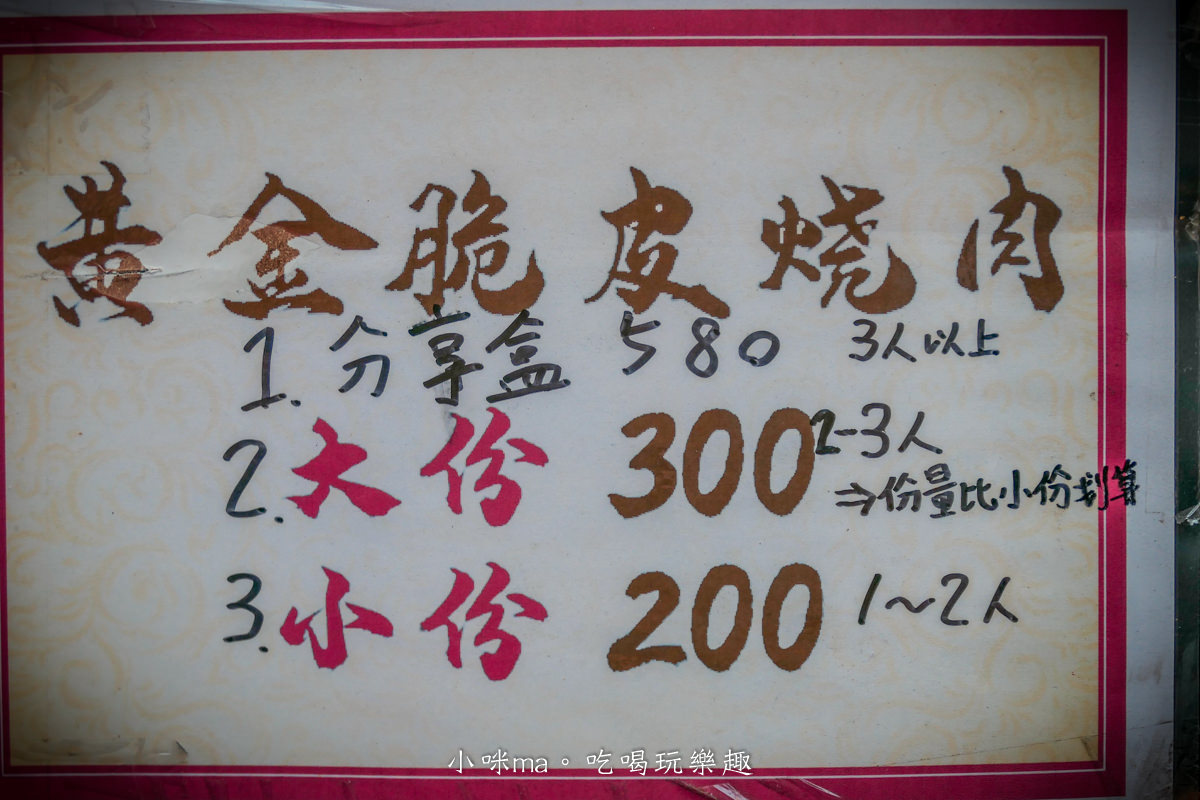 黃金脆皮燒肉
1.分享盒 580 3人以上
2.大份 300 2-3人
⇒份量比小份划算
3.小份 200 1~2人
小咪ma。吃喝玩樂趣